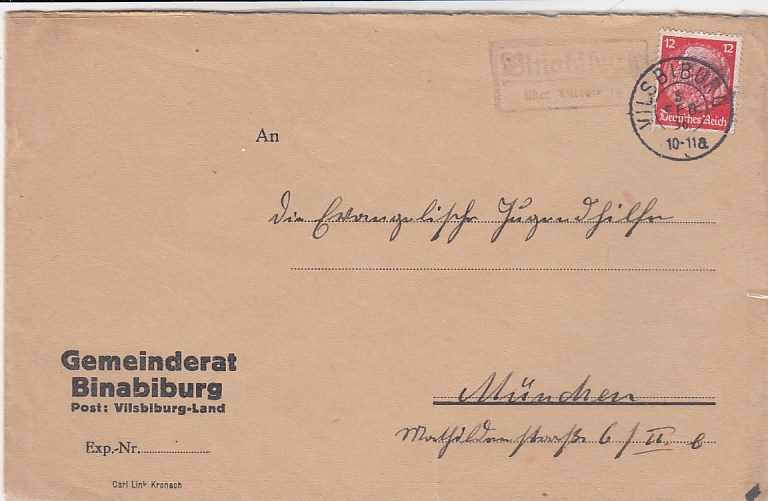 12 12
Deutsches Reich
Binabiburg
über Vilsbiburg
VILSBIBURG
5
FEB
36
10-11 a
An
die Evangelische Jugendhilfe
München
Mathildenstraße 6 / II. 6
Gemeinderat
Binabiburg
Post: Vilsbiburg-Land
Exp.-Nr.
Carl Link Kronach